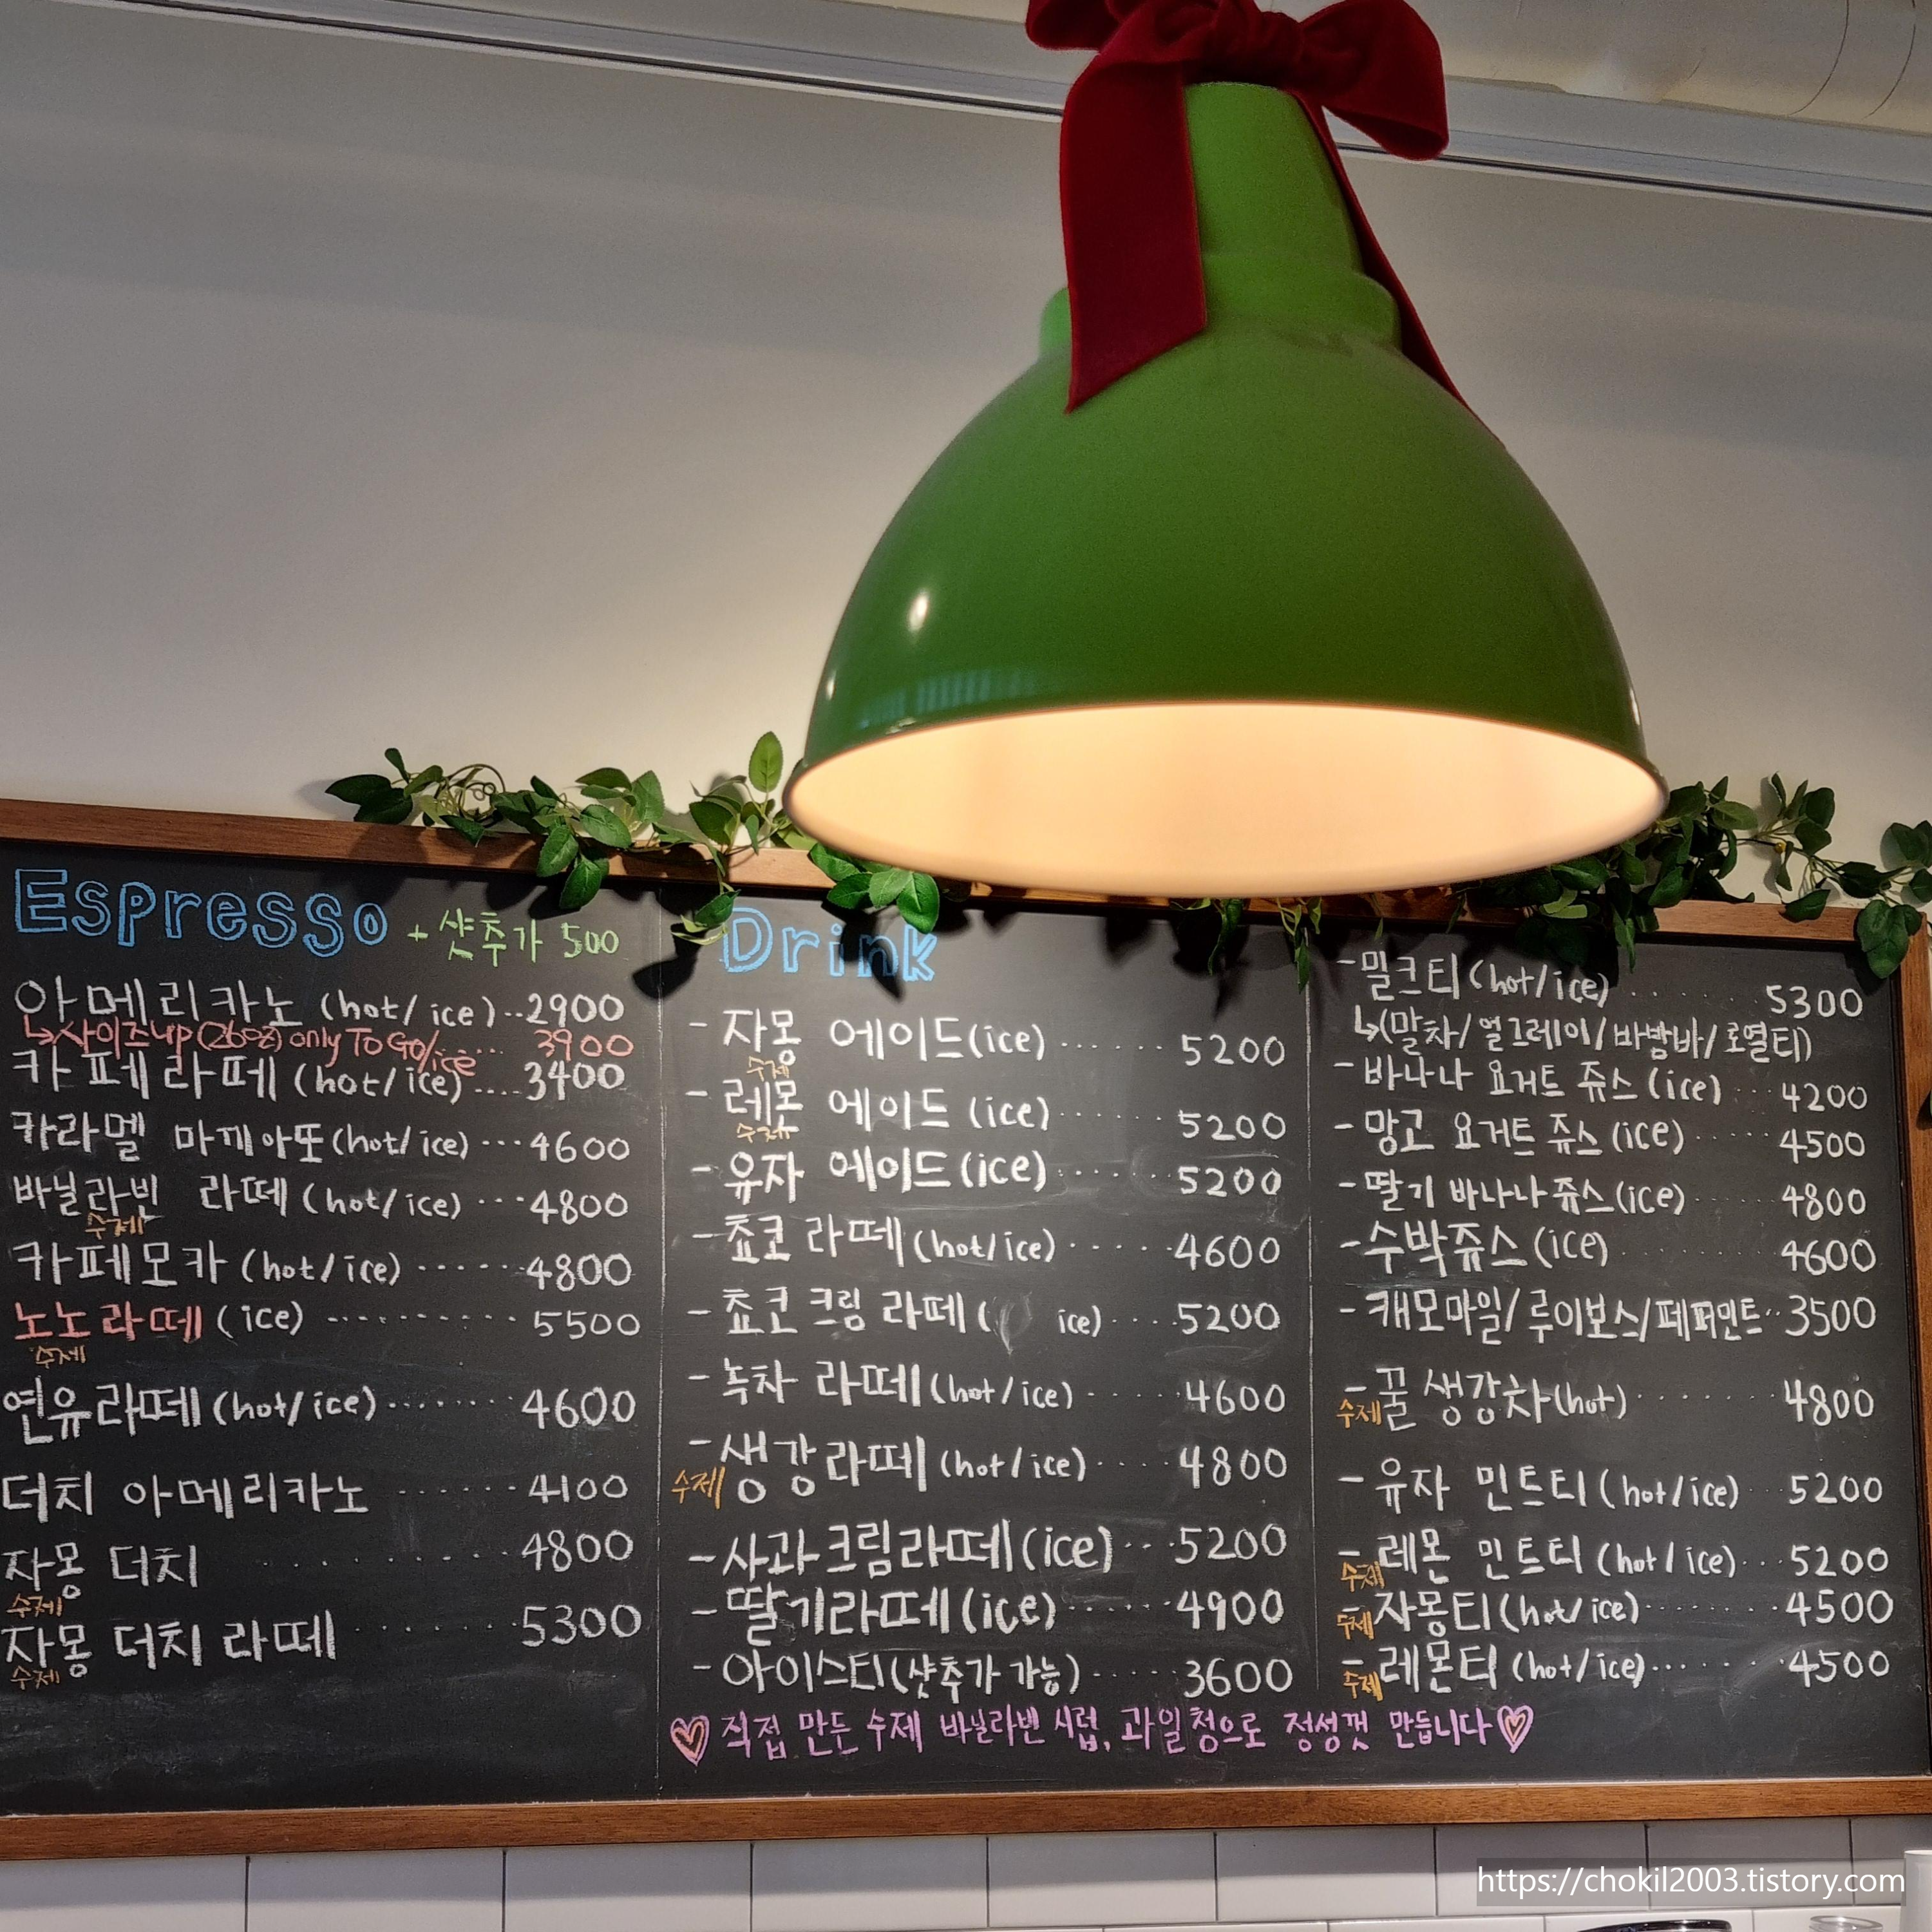 Espresso + 샷추가 500
아메리카노 (hot/ice)..2900
↳사이즈up(26oz) only To Go/ice... 3900
카페라떼 (hot/ice)....3400
카라멜 마끼아또(hot/ice) ...4600
바닐라빈 라떼 (hot/ice) ...4800
수제
카페모카 (hot/ice) ......4800
노노라떼 (ice) ..........5500
수제
연유라떼(hot/ice)....... 4600
더치 아메리카노 ...... 4100
자몽 더치 ..........4800
수제
자몽 더치 라떼 .......5300
수제
Drink
- 자몽 에이드(ice) ...... 5200
수제
- 레몬 에이드 (ice)...... 5200
수제
- 유자 에이드(ice)...... 5200
- 쵸코 라떼(hot/ice).....4600
- 쵸코크림 라떼 ( ice)...5200
- 녹차 라떼(hot/ice) .... 4600
수제 - 생강라떼 (hot/ice) .... 4800
- 사과크림라떼(ice)...5200
- 딸기라떼(ice)...... 4900
- 아이스티(샷추가 가능)..... 3600
- 밀크티(hot/ice)....... 5300
↳(말차/얼그레이/바밤바/로열티)
- 바나나 요거트 쥬스 (ice) .. 4200
- 망고 요거트 쥬스 (ice)..... 4500
- 딸기 바나나쥬스(ice) ..... 4800
- 수박쥬스 (ice) ....... 4600
- 캐모마일/루이보스/페퍼민트..3500
수제 - 꿀 생강차(hot) ....... 4800
- 유자 민트티(hot/ice) . 5200
수제 - 레몬 민트티 (hot/ice)... 5200
수제 - 자몽티(hot/ice)...... 4500
수제 - 레몬티 (hot/ice)...... 4500
♡ 직접 만든 수제 바닐라빈 시럽, 과일청으로 정성껏 만듭니다♡
https://chokil2003.tistory.com